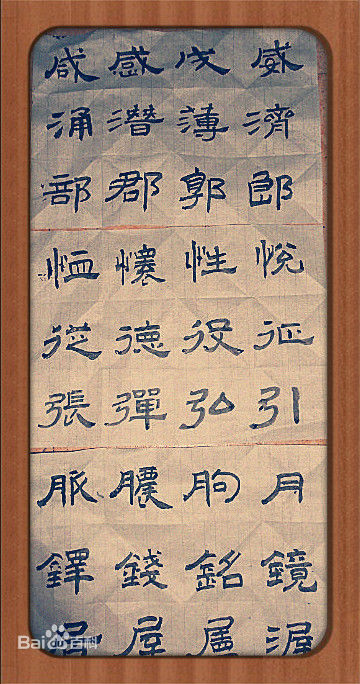 威成感咸
濟薄潛涌
郎郭郡部
悅性懷恤
征役德從
引弘彈張
月朐脈
鏡銘錢鐸
屋
Bai百科